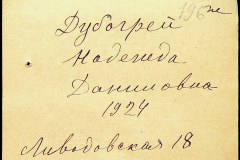 196ж
Дубогрей
Надежда
Даниловна
1924
Ливадовская 18